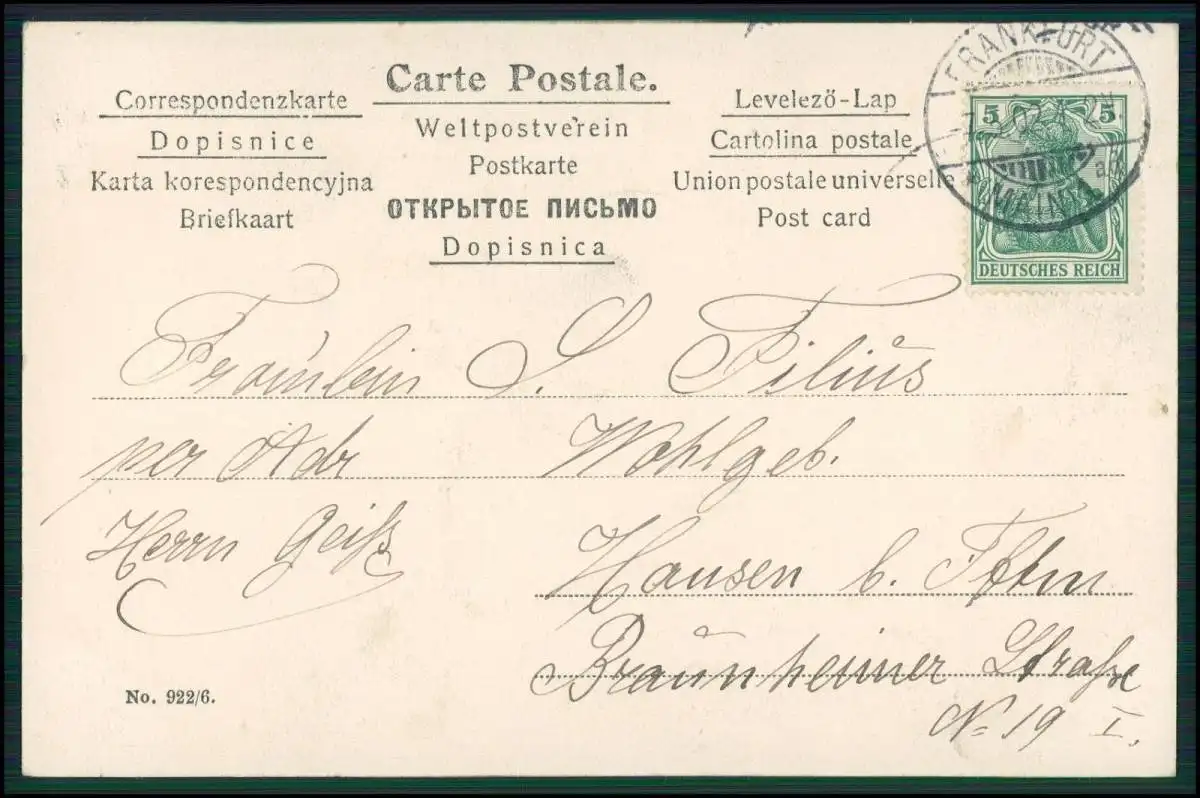 Carte Postale.
Correspondenzkarte
Dopisnice
Karta korespondencyjna
Briefkaart
Weltpostverein
Postkarte
ОТКРЫТОЕ ПИСЬМО
Dopisnica
Levelező-Lap
Cartolina postale
Union postale universelle
Post card
FRANKFURT
MAIN
5 5
DEUTSCHES REICH
Fräulein S. Filius
per Adr Wohlgeb.
Herrn Geiß
Hausen b. Fftm
Braunheimer Straße
No 19 I.
No. 922/6.